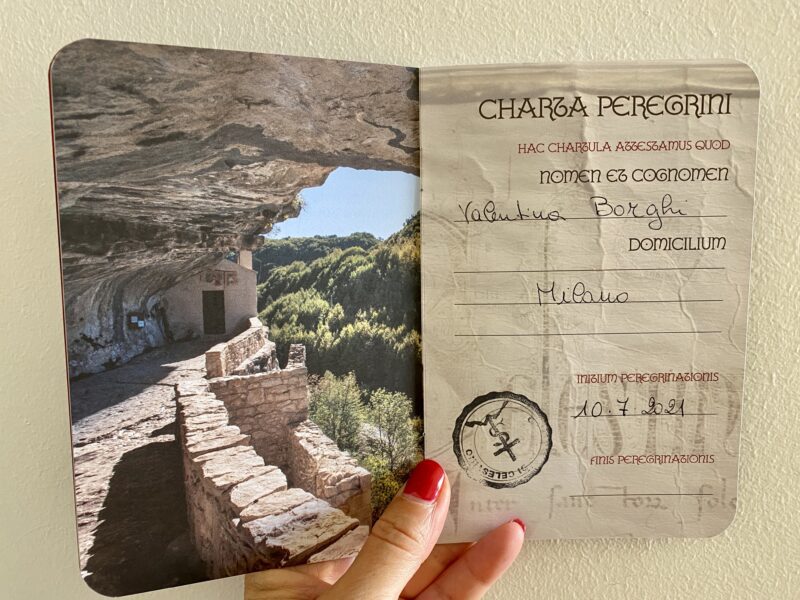 CHARTA PEREGRINI
HAC CHARTULA ATTESTAMUS QUOD
NOMEN ET COGNOMEN
Valentina Borghi
DOMICILIUM
Milano
INITIUM PEREGRINATIONIS
10.7.2021
DI CELESTINO
FINIS PEREGRINATIONIS